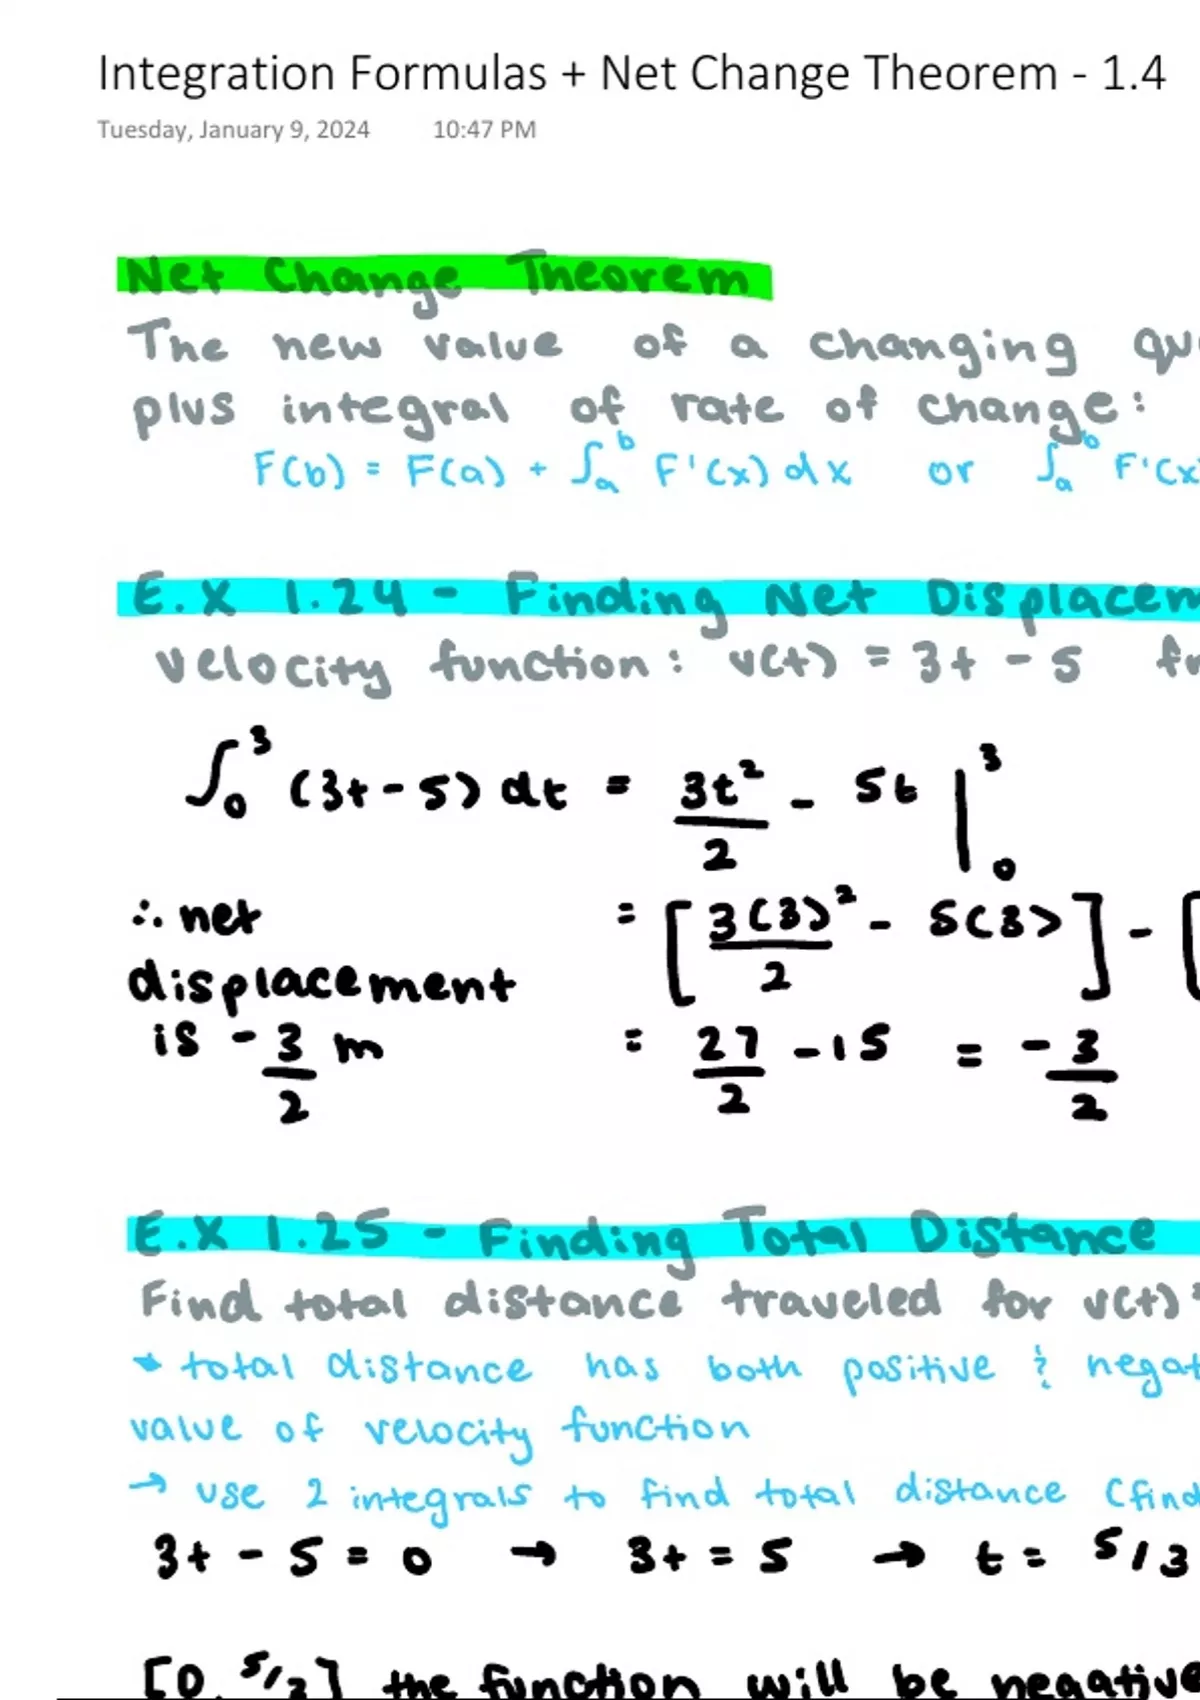 Integration Formulas + Net Change Theorem - 1.4
Tuesday, January 9, 2024 10:47 PM
Net Change Theorem
The new value of a changing
plus integral of rate of change:
F(b) = F(a) + ∫ₐᵇ F'(x) dx or ∫ₐᵇ F'(x)
E.X 1.24 - Finding Net
velocity function: v(t) = 3t - 5
∫₀³ (3t - 5) dt = 3t²/2 - 5t |₀³
∴ net = [3(3)²/2 - 5(3)] - [
displacement
is -3/2 m = 27/2 - 15 = -3/2
E.X 1.25 - Finding Total Distance
Find total distance traveled for v(t) =
* total distance has both positive &
value of velocity function
→ use 2 integrals to find total distance (find
3t - 5 = 0 → 3t = 5 → t = 5/3
[0, 5/3] the function will be negative